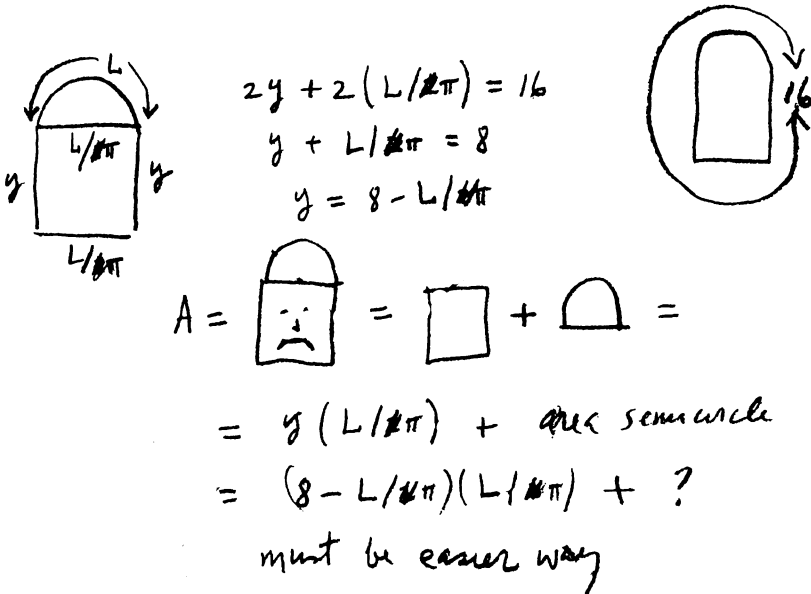 L
L/π
y y
L/π
2y + 2(L/π) = 16
y + L/π = 8
y = 8 - L/π
16
A = = + =
= y(L/π) + area semicircle
= (8 - L/π)(L/π) + ?
must be easier way